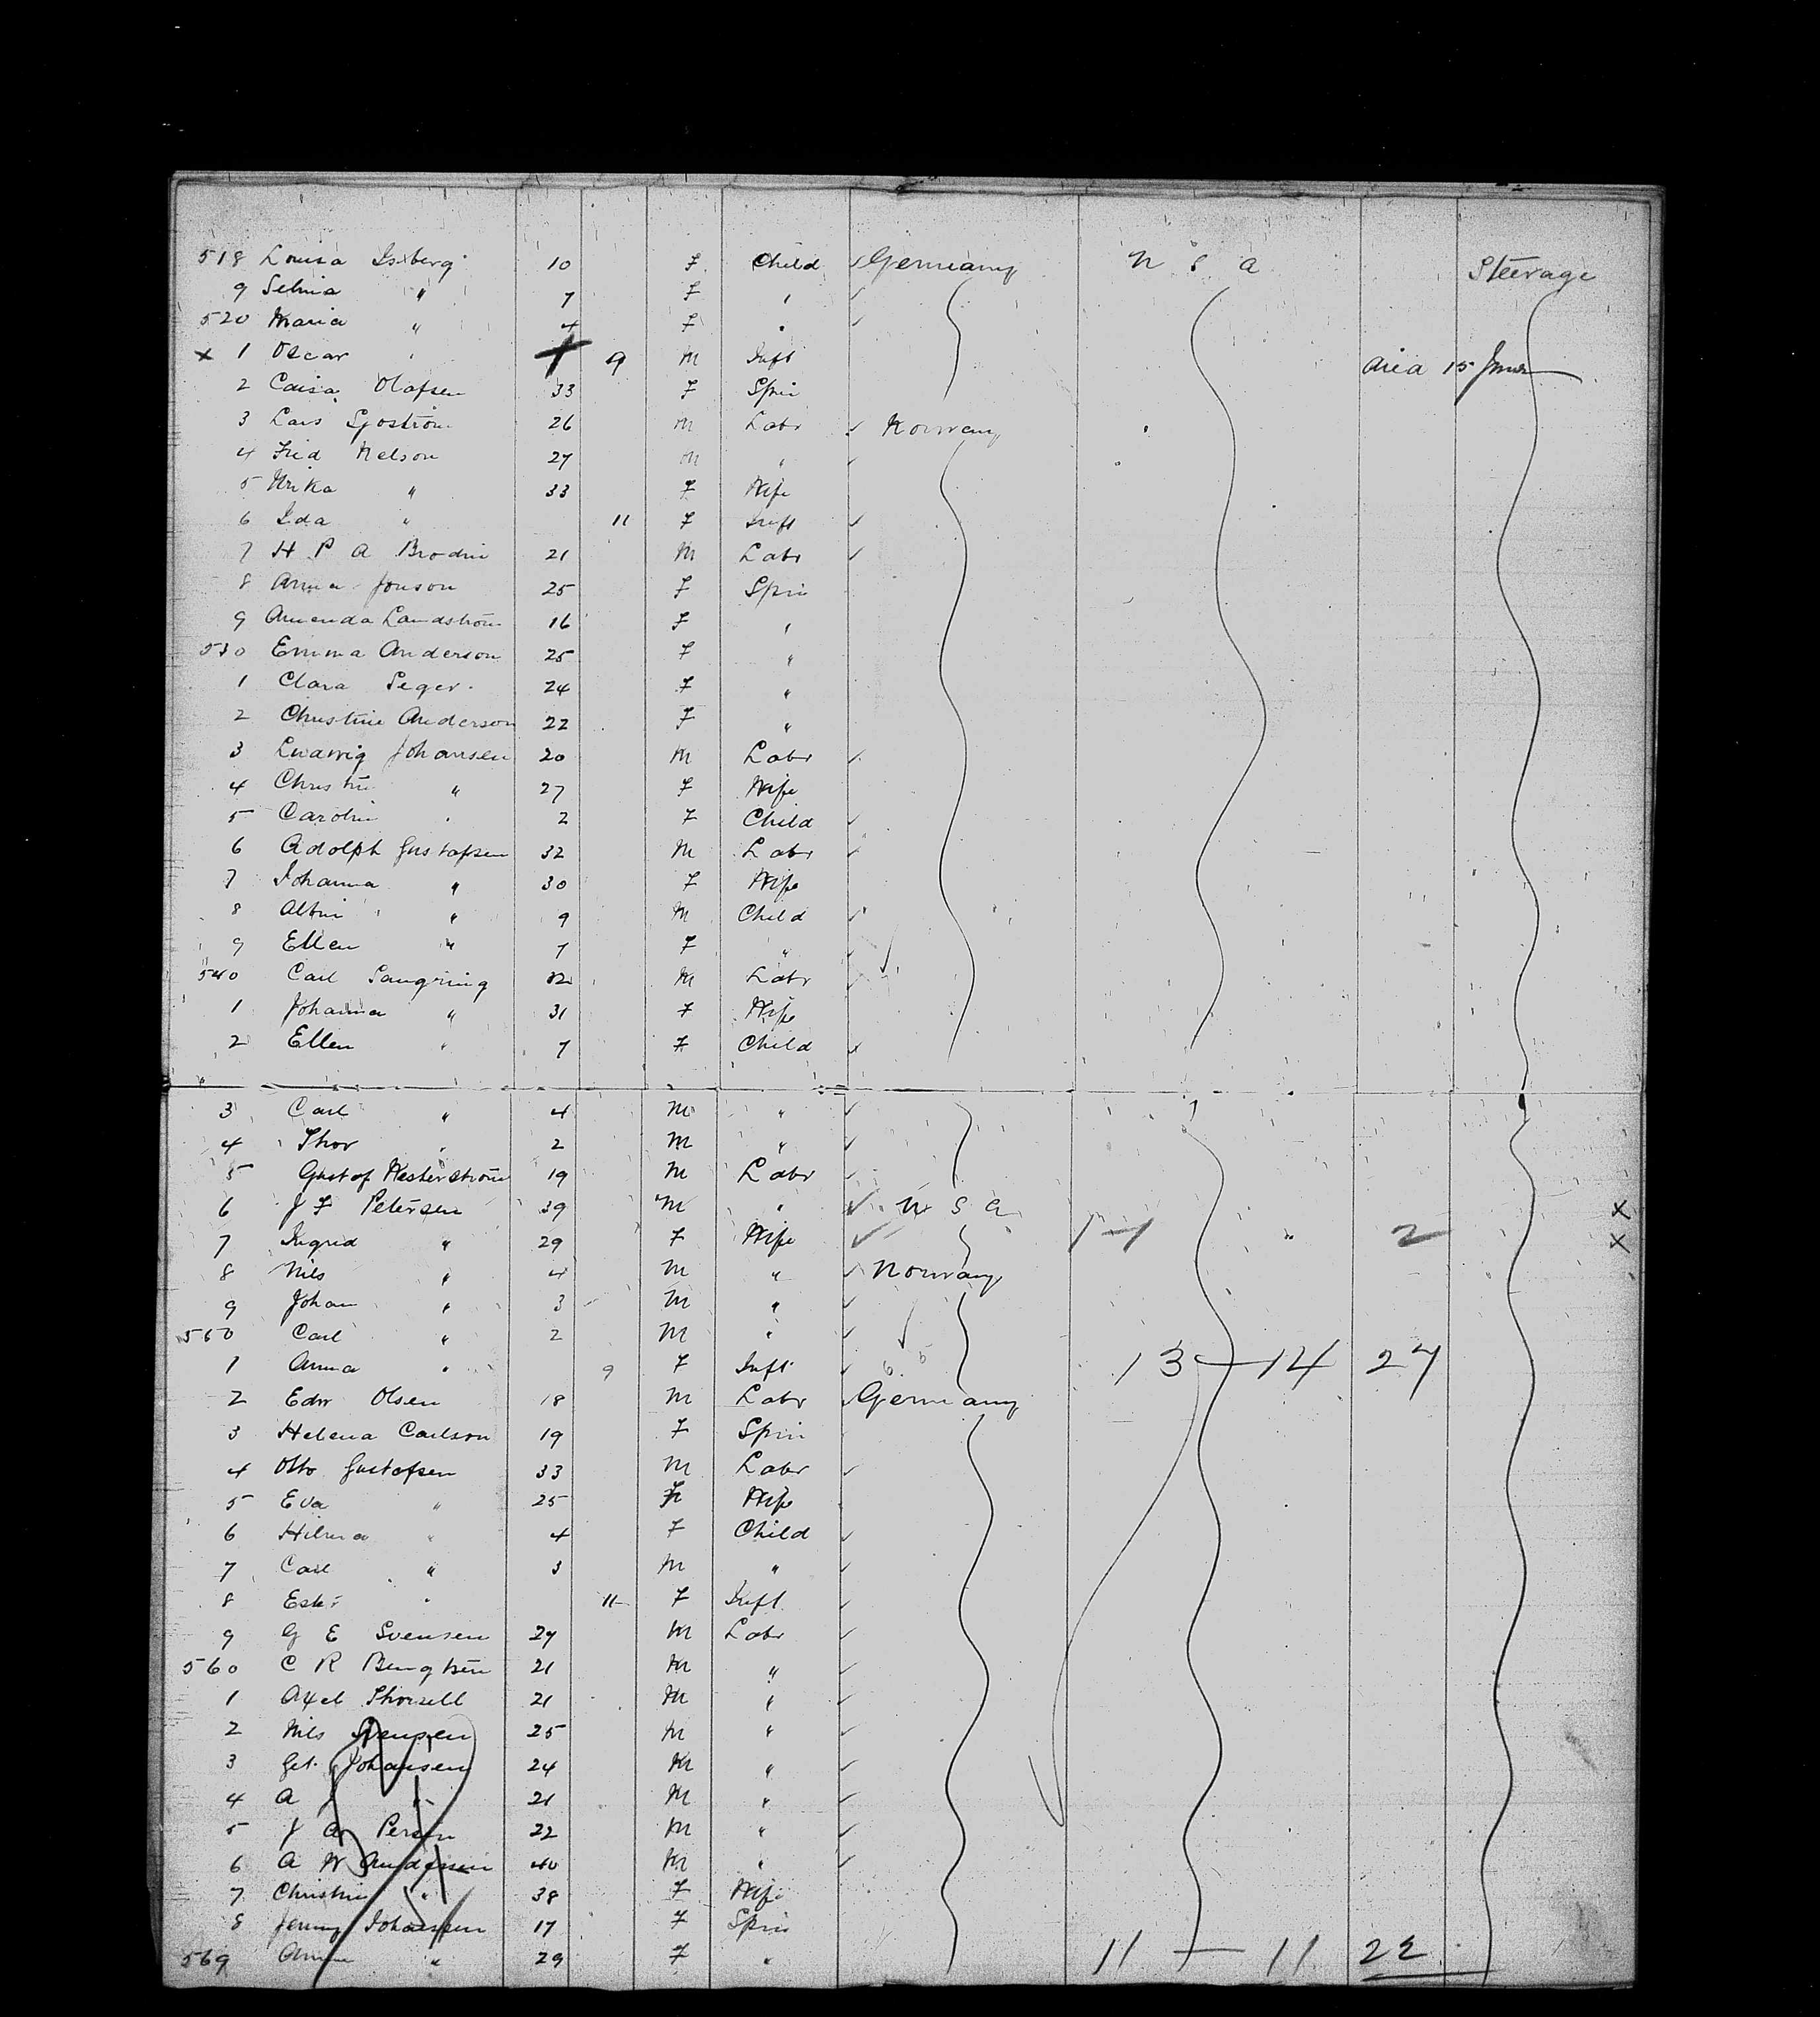 518 Louisa Isxberg 10 F Child ✓ Germany U S A Steerage
9 Selma " 7 F " ✓
520 Maria " 4 F " ✓
x 1 Oscar " 9 M Inft died 15 June
2 Caisa Olafsen 33 F Spin
3 Lars Sjostrom 26 M Labr ✓ Norway "
4 Fred Nelson 27 M " ✓ "
5 Ulrika " 33 F Wife
6 Ida " 11 F Inft ✓
7 H P A Brodin 21 M Labr ✓
8 Anna Jonson 25 F Spin
9 Amenda Landstrom 16 F "
530 Emma Anderson 25 F "
1 Clara Seger 24 F "
2 Christine Anderson 22 F "
3 Ludwig Johansen 20 M Labr ✓
4 Christin " 27 F Wife
5 Carolin " 2 F Child ✓
6 Adolph Gustafsen 32 M Labr ✓
7 Johanna " 30 F Wife
8 Albin " 9 M Child ✓
9 Ellen " 7 F " ✓
540 Carl 32 M Labr ✓
1 Johanna " 31 F Wife
2 Ellen " 7 F Child ✓
3 Carl " 4 M " ✓
4 Thor " 2 M " ✓
5 Gustof Westerstrom 19 M Labr ✓
6 J F Petersen 39 M " ✓ U S A x
7 Ingrid " 29 F Wife ✓ 1-1 " 2 x
8 Nils " 4 M " ✓ Norway
9 Johan " 3 M " ✓
560 Carl " 2 M " ✓
1 Anna " 9 F Inft ✓ 6 5 13-14 27
2 Edw Olsen 18 M Labr ✓ Germany
3 Helena Carlson 19 F Spin
4 Otto Gustafsen 33 M Labr ✓
5 Eva " 25 F Wife
6 Hilma " 4 F Child ✓
7 Carl " 3 M " ✓
8 " 11 F Inft ✓
9 G E Svensen 27 M Labr ✓
560 C R Bengtsen 21 M " ✓
1 Axel Thorsell 21 M " ✓
2 Nils 25 M " ✓
3 Johansen 24 M " ✓
4 A " 21 M " ✓
5 J A Persen 22 M " ✓
6 A W Andersen 40 M " ✓
7 Christin " 38 F Wife
8 Jenny Johansen 17 F Spin
569 " 29 F " 11-11 22